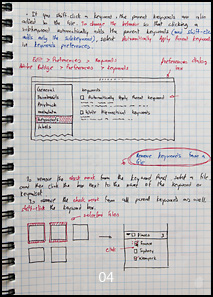 - If you shift-click a keyword, the parent keywords are also
added to the file. To change the behavior so that clicking a
subkeyword automatically adds the parent keywords (and shift-click
adds only the subkeyword), select Automatically Apply Parent Keywords
in keywords preferences.
Edit > Preferences > Keywords
Adobe Bridge > Preferences > Keywords
Preferences dialog
box
General
Thumbnails
Playback
Metadata
Keywords
Labels
Keywords
Automatically Apply Parent Keywords
Write Hierarchical Keywords
Remove keywords from a
file
To remove the check mark from the keyword, select a file
and then click the box next to the name of the keyword or
keyword set.
To remove the check mark from parent keywords as well,
shift-click the keyword box.
selected files
click
Places
France
Sydney
04